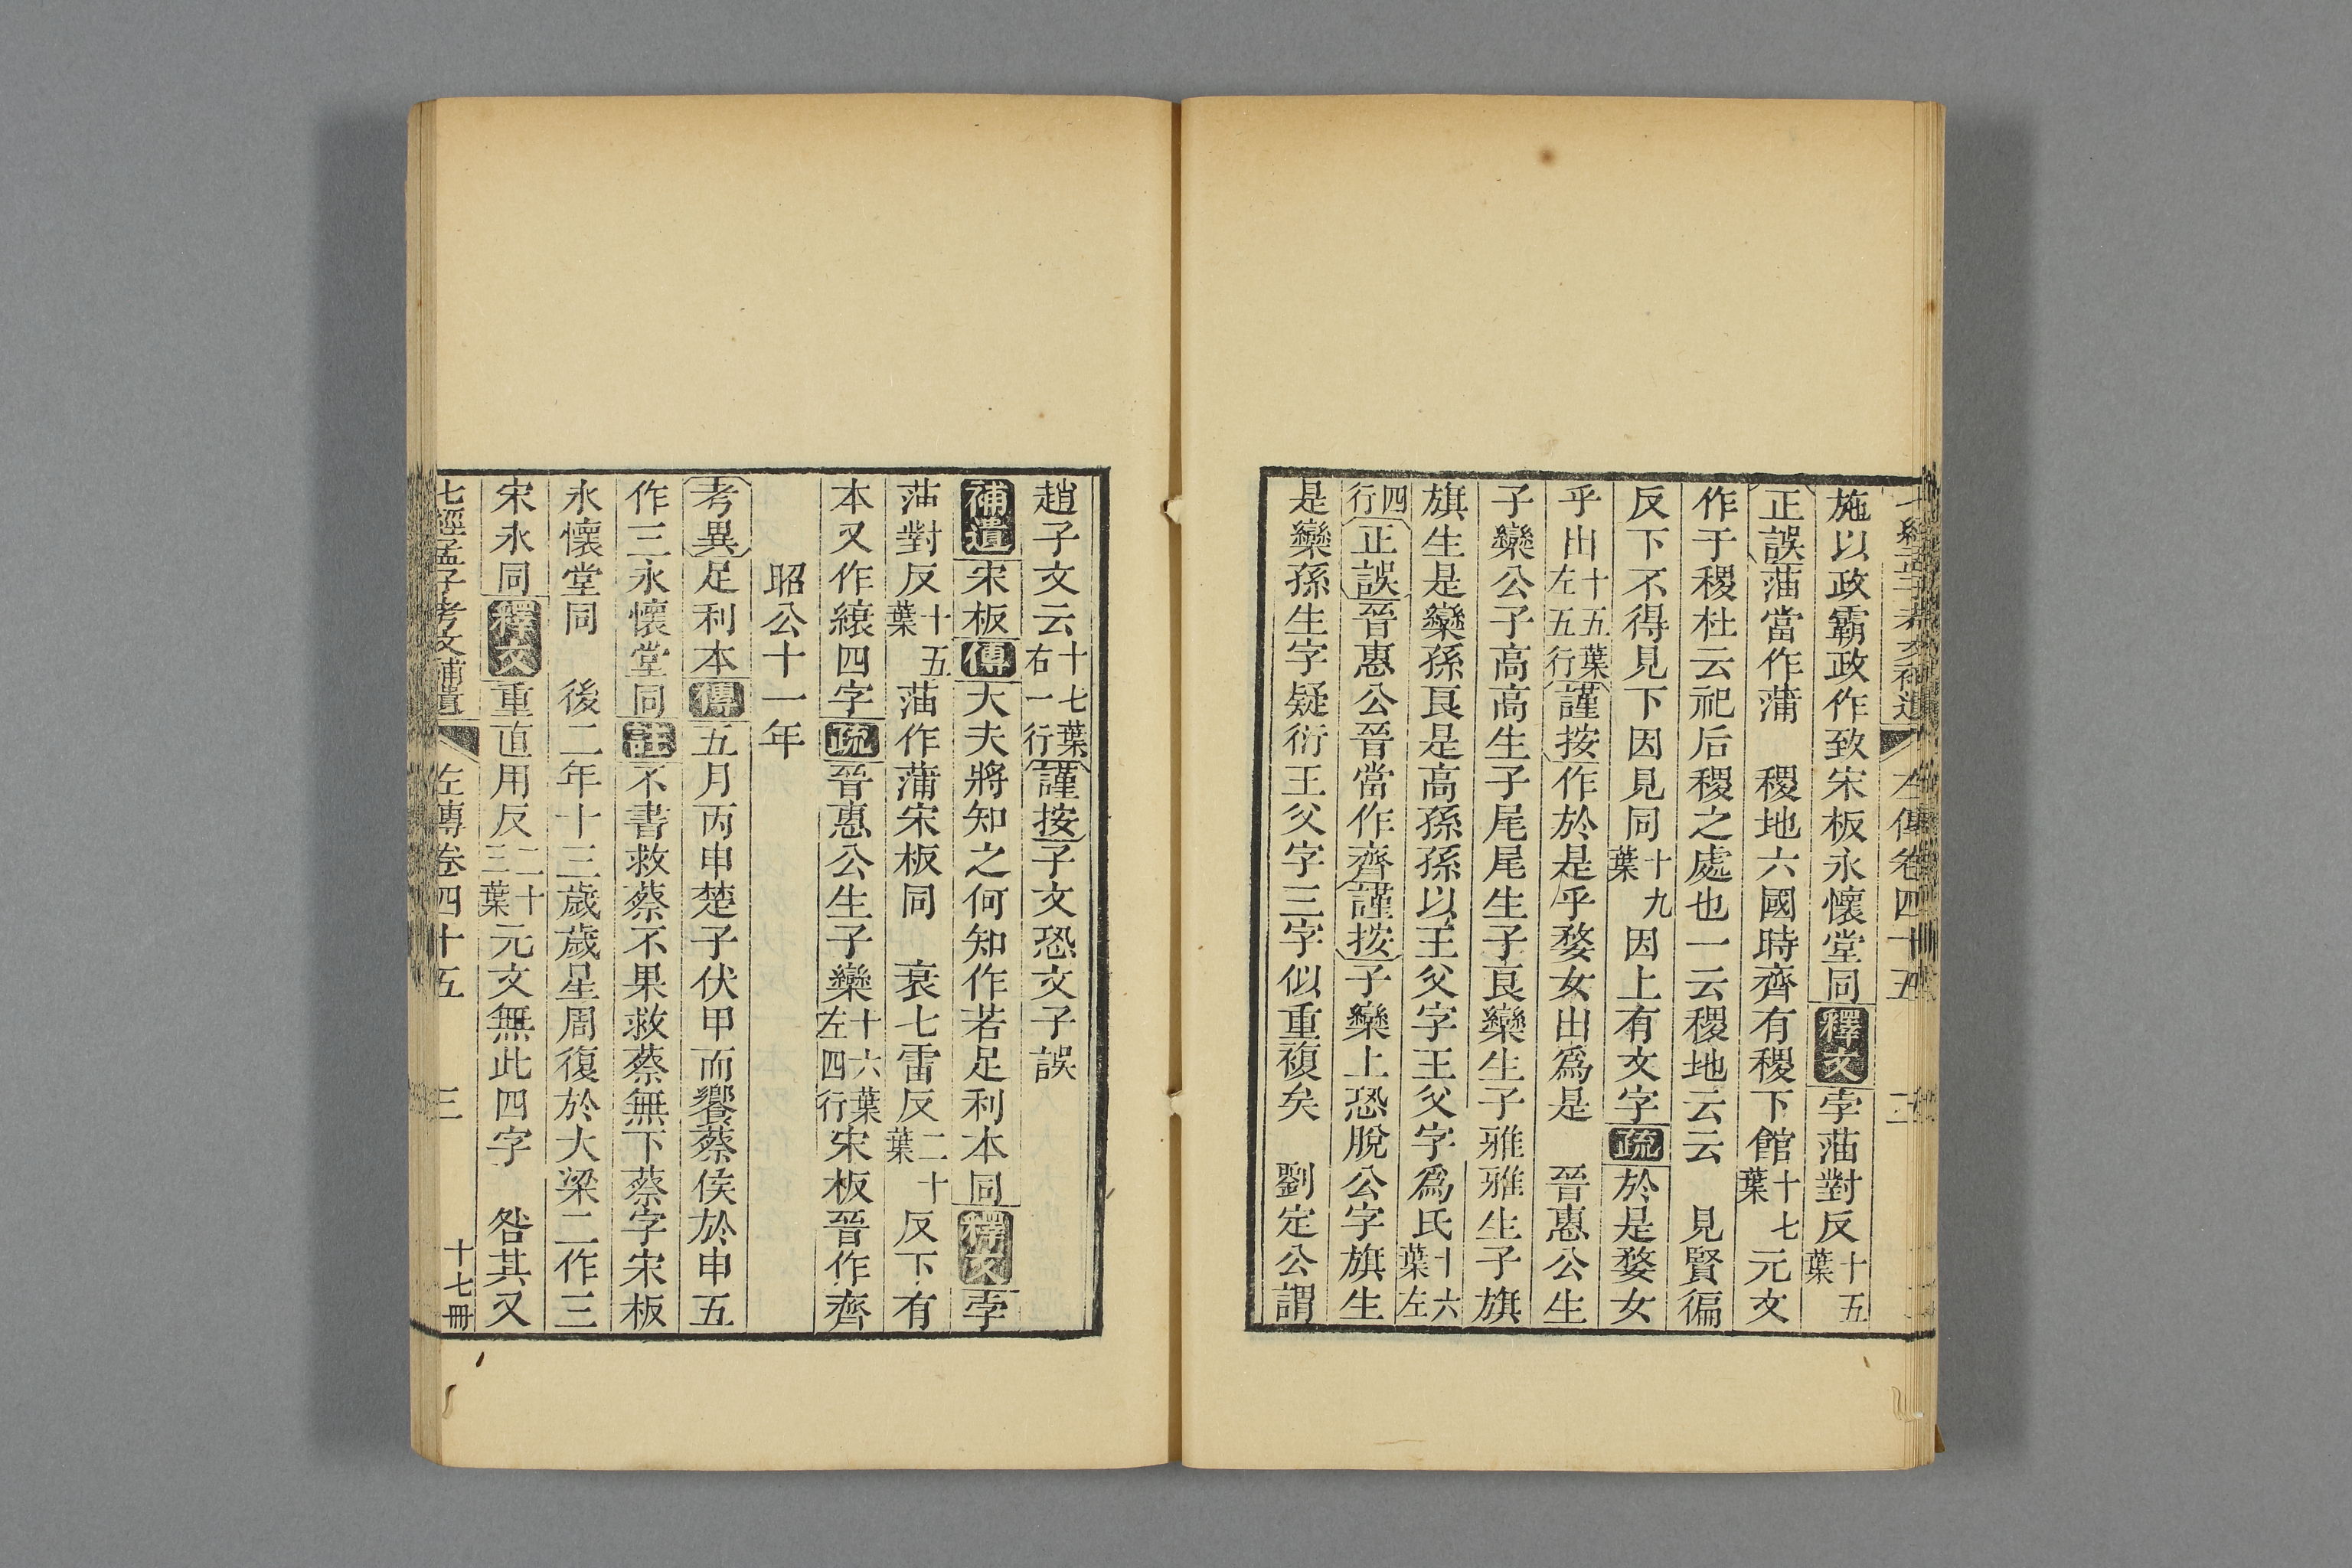 施以政霸政作致宋板永懷堂同釋文孛蒲對反十五葉
正誤蒲當作蒲　稷地六國時齊有稷下館十七葉元文
作于稷杜云祀后稷之處也一云稷地云云　見賢徧
反下不得見下因見同十九葉因上有文字疏於是婺女
乎出十五葉左五行謹按作於是乎婺女出爲是　晉惠公生
子欒公子高高生子尾尾生子良欒生子雅雅生子旗
旗生是欒孫良是高孫孫以王父字王父字爲氏十六葉左
四行正誤晉惠公晉當作齊謹按子欒上恐脫公字旗生
是欒孫生字疑衍王父字三字似重複矣　劉定公謂
趙子文云十七葉右一行謹按子文恐文子誤
補遺宋板傳大夫將知之何知作若足利本同釋文孛
蒲對反十五葉蒲作蒲宋板同　衰七雷反二十葉反下有
本又作縗四字疏晉惠公生子欒十六葉左四行宋板晉作齊
昭公十一年
考異足利本傳五月丙申楚子伏甲而饗蔡侯於申五
作三永懷堂同註不書救蔡不果救蔡無下蔡字宋板
永懷堂同　後二年十三歲歲星周復於大梁二作三
宋永同釋文重直用反二十三葉元文無此四字　咎其又
七經孟子考文補遺　左傳卷四十五　三　十七冊